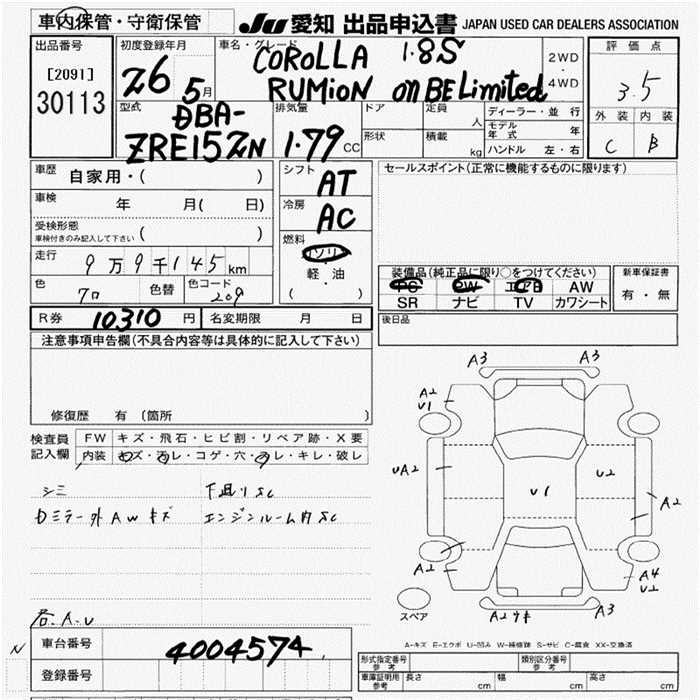 車内保管・守衛保管
JU 愛知 出品申込書 JAPAN USED CAR DEALERS ASSOCIATION
出品番号
[2091]
30113
初度登録年月
26 5月
車名・グレード
COROLLA 1.8S
RUMION on BE Limited
2WD
・
4WD
評価点
3.5
外装 内装
C B
型式
DBA-
ZRE152N
排気量
1.79 CC
ドア
定員 人
形状
積載 kg
ディーラー・並行
モデル年式 年
ハンドル 左・右
車歴 自家用・( )
車検 年 月( 日)
受検形態
車検付きのみ記入して下さい ( )
走行 9万9千145km
色 クロ 色替 色コード 209
シフト AT
冷房 AC
燃料
ガソリン
・
軽・油
( )
セールスポイント(正常に機能するものに限ります)
装備品(純正品に限り○をつけてください)
PS PW エアB AW
SR ナビ TV カワシート
新車保証書
有・無
R券 10310 円 名変期限 月 日
後日品
注意事項申告欄(不具合内容等は具体的に記入して下さい)
修復歴 有 (箇所 )
検査員
記入欄
FW キズ・飛石・ヒビ割・リペア跡・X要
内装 キズ・汚レ・コゲ・穴・スレ・キレ・破レ
シミ 下廻りSC
Dミラー外 AW キズ エンジンルーム内SC
A3 A3
A2
U1
UA2
U1
U2
A2
A2
A4
U2
A2 A3
スペア
A-キズ E-エクボ U-凹み W-補修跡 S-サビ C-腐食 XX-交換済
車台番号 4004574
登録番号
N
形式指定番号
参考
類別区分番号
参考
車庫証明用
参考
長さ cm 幅 cm 高さ cm